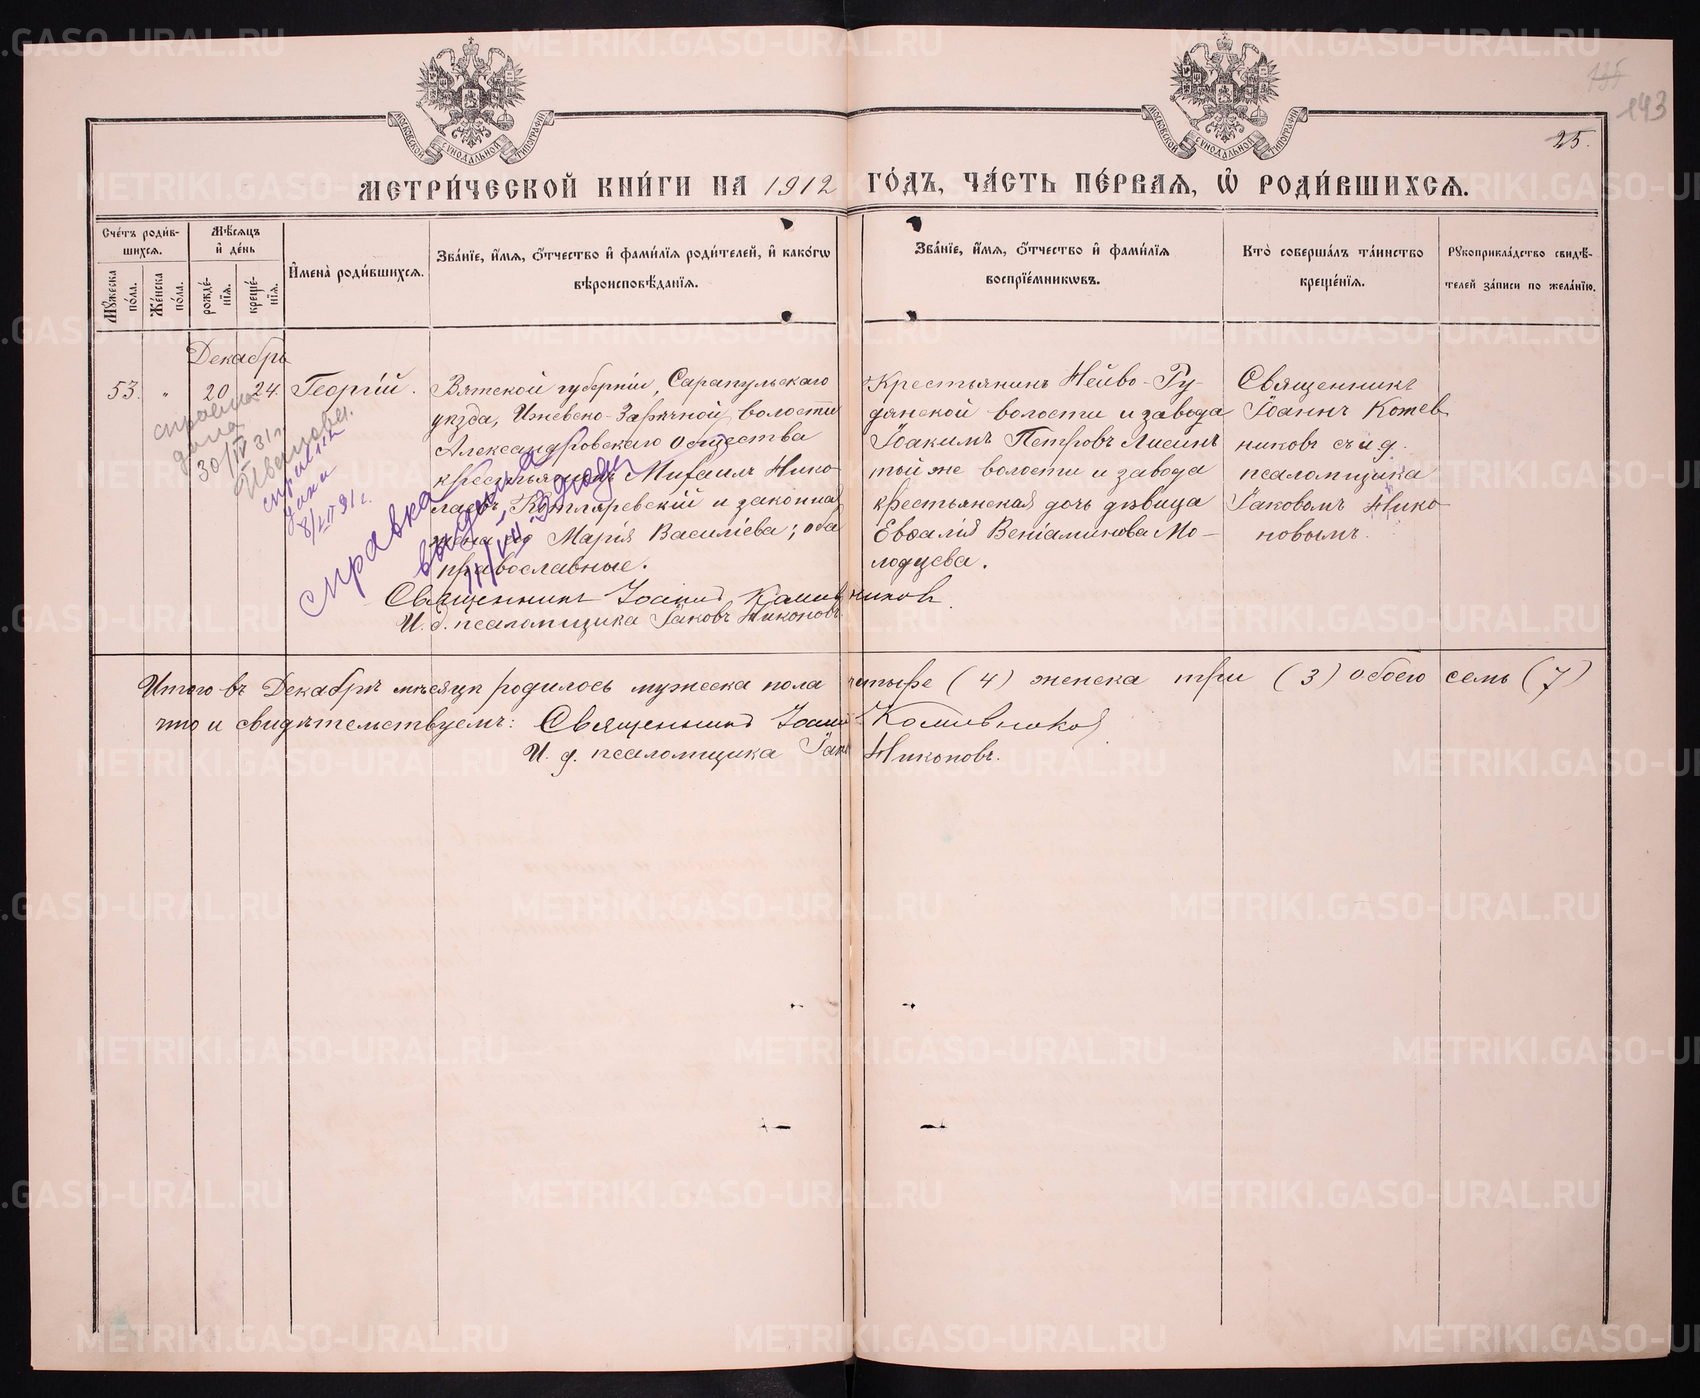 135
143
25.
МОСКОВСКОЙ СУНОДАЛЬНОЙ ТИПОГРАФІИ
МОСКОВСКОЙ СУНОДАЛЬНОЙ ТИПОГРАФІИ
МЕТРИ́ЧЕСКОЙ КНИ́ГИ НА 1912 ГО́ДЪ, ЧА́СТЬ ПЕ́РВАЯ, Ѡ РОДИ́ВШИХСЯ.
Сче́тъ роди́в-
шихся.
Му́жеска
по́ла.
Же́нска
по́ла.
Мѣ́сяцъ
и де́нь
рожде́-
нїя.
креще́-
нїя.
Имена̀ роди́вшихся.
Зва́нїе, и́мя, о́тчество и фами́лїя роди́телей, и како́гѡ
вѣроисповѣ́данїя.
Зва́нїе, и́мя, о́тчество и фами́лїя
воспрїе́мникѡвъ.
Кто̀ соверша́лъ та́инство
креще́нїя.
Рукоприкла́дство свидѣ́-
телей за́писи по жела́нїю.
Декабрь
53. " 20 24. Георгій.
Вятской губерніи, Сарапульскаго
уѣзда, Ижевско-Зарѣчной волости
Александровскаго общества
крестьянинъ Михаилъ Нико-
лаевъ Котляревскій и законная
жена его Марія Василіева; оба
православные.
Крестьянинъ Нейво-Ру-
дянской волости и завода
Іоакимъ Петровъ Лисинъ
той же волости и завода
крестьянская дочь дѣвица
Евѳалія Веніаминова Мо-
лодцева.
Священникъ
Іоаннъ Кожев
никовъ съ и.д.
псаломщика
Іаковомъ Нико
новымъ.
справка
дана
30/IV 31 г.
справка
дана
8/IV 31 г.
справка
выдана
11/VII
Священникъ Іоаннъ Кожевниковъ.
И. д. псаломщика Іаковъ Никоновъ.
Итого въ Декабрѣ мѣсяцѣ родилось мужеска пола четыре (4) женска три (3) обоего семь (7)
что и свидѣтельствуемъ: Священникъ Іоаннъ Кожевниковъ
И. д. псаломщика Іаковъ Никоновъ.
METRIKI.GASO-URAL.RU